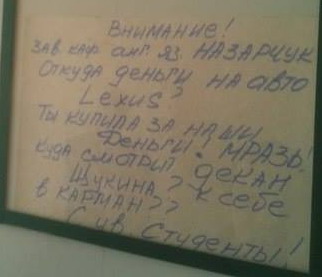 ВНИМАНИЕ!
ЗАВ. КАФ. АНГ. ЯЗ. НАЗАРЧУК
Откуда деньги на авто
Lexus?
Ты купила за наши
Деньги! МРАЗЬ!
куда смотрит декан
Щукина? к себе
в карман??
Студенты!